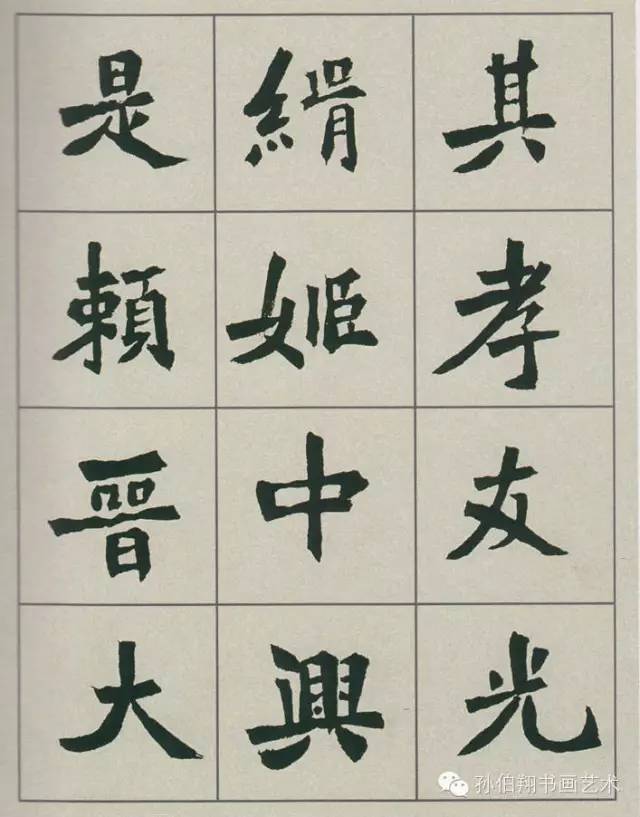 其孝友光
緝姬中興
是賴晉大
孙伯翔书画艺术